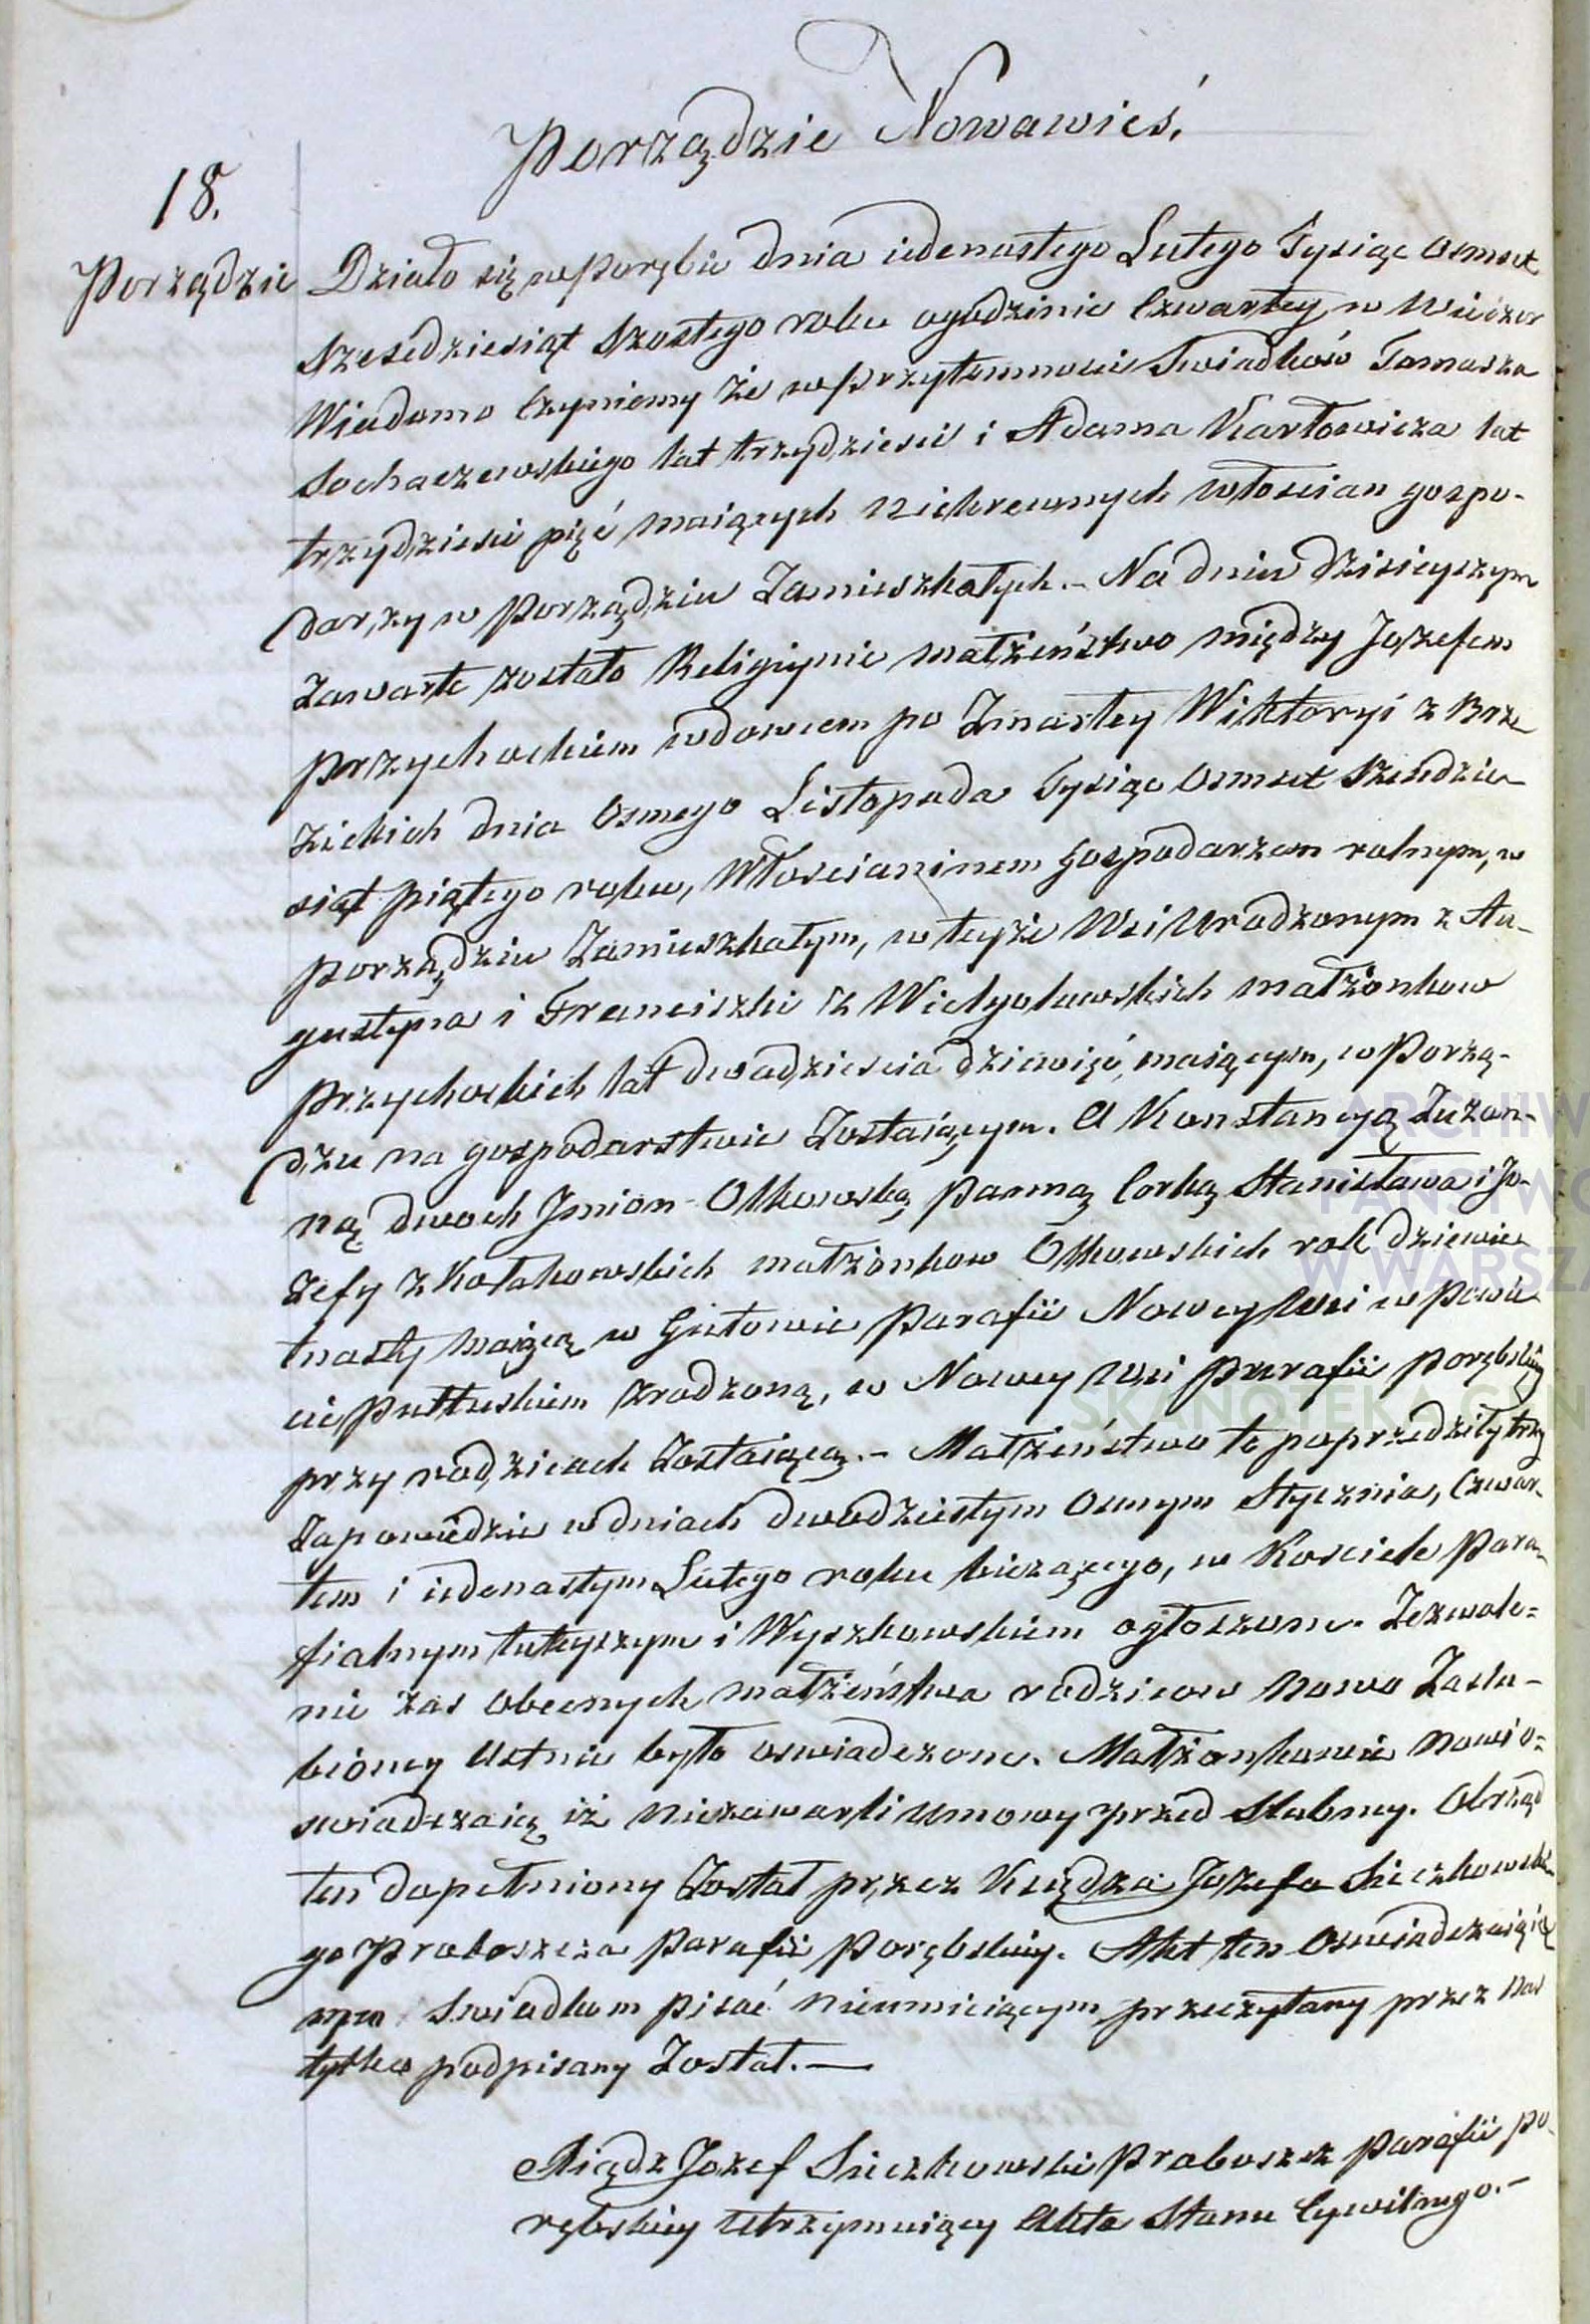 Porządzie Nowawieś,
18.
Porządzie
Działo się w Porębie dnia iedenastego Lutego Tysiąc Osmset
Szesdziesiąt Szostego roku ogodzinie Czwartey w Wieczor
Wiadomo Czyniemy że w przytomnosci Swiadków Tomasza
Sochaczewskiego lat trzydziesci i Adama Karłowicza lat
trzydziesci pięć maiących niekrewnych włoscian gospo-
darzy w Porządziu Zamieszkałych.- Na dniu dzisieyszym
Zawarte zostało Religiynie małżeństwo między Jozefem
Przychockim wdowcem po Zmarłey Wiktoryi z Brze
zickich dnia Osmego Listopada Tysiąc Osmset Szesdzie-
siąt piątego roku, Włoscianinem gospodarzem rolnym, w
Porządziu Zamieszkałym, w teyże Wsi Urodzonym z Au-
gustyna i Franciszki z Wichgolawskich małżonkow
Przychockich lat dwadziescia dziewięć maiącym, w Porzą-
dziu na gospodarstwie Zostaiącym. A Konstancyą Zuzan-
ną dwoch Jmion Olkowską Panną Corką Stanisława i Jo-
zefy z Kołakowskich małżonkow Olkowskich rok dziewię
tnasty maiącą w Gutowie Parafii Nowey Wsi w Powie
cie Pułtuskim zrodzoną, w Nowey Wsi Parafii Porębskiey
przy rodzicach Zostaiącą.- Małżeństwo to poprzedziły trzy
Zapowiedzie w dniach dwudziestym Osmym Stycznia, Czwar-
tem i iedenastym Lutego roku bieżącego, w Kosciele Para-
fialnym tuteyszym i Wyszkowskim ogłoszone. Zezwole=
nie zas obecnych małżeństwa rodzicow nowo Zaslu-
bioney Ustnie było oswiadczone. Małżonkowie nowi o=
swiadczaią iż niezawarli umowy przed slubney. Obrząd
ten dopełniony Został przez Księdza Jozefa Sieczkowskie-
go Proboszcza Parafii Porębskiey. Akt ten Oswiadczaiącą
mym Swiadkom pisać nieumieiącym przeczytany przez nas
tylko podpisany Został.—
Xiądz Jozef Sieczkowski Proboszcz Parafii Po-
rębskiey Utrzymuiący Akta Stanu Cywilnego.-
ARCHIW
PAŃSTWO
W WARSZA
SKANOTEKA GEN